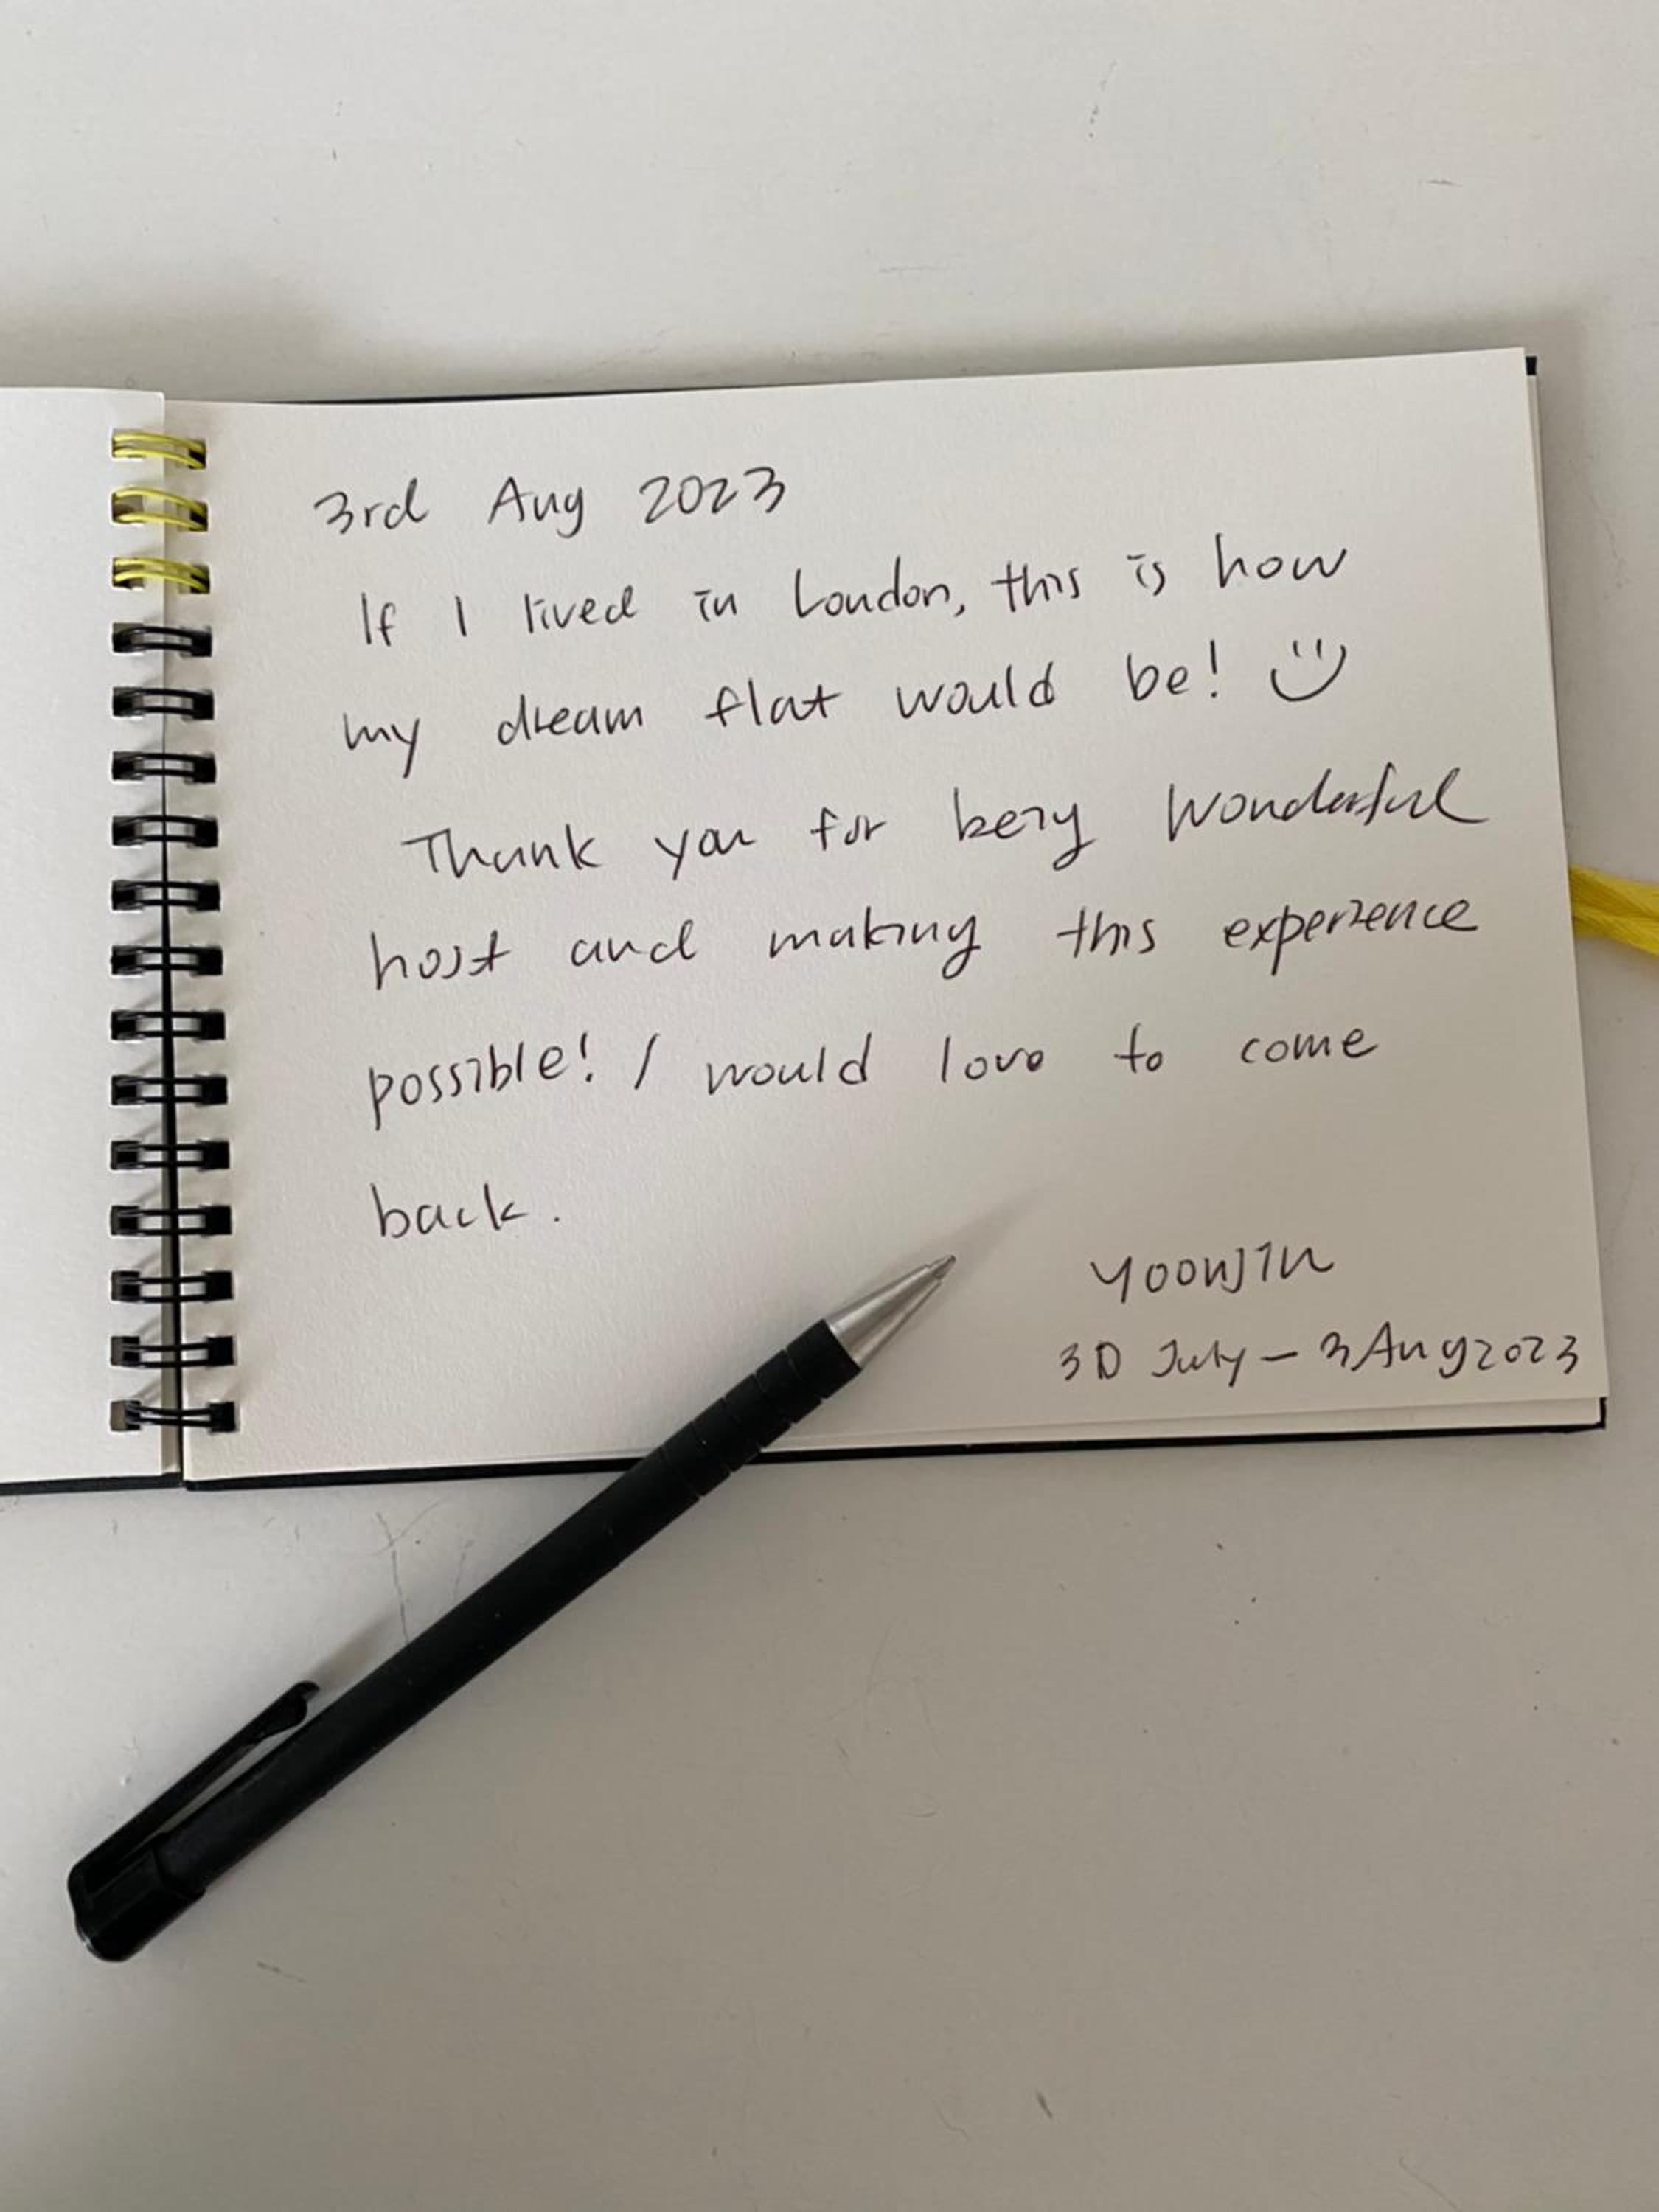 3rd Aug 2023
If I lived in London, this is how
my dream flat would be!
Thank you for being wonderful
host and making this experience
possible! I would love to come
back.
YOONJIN
30 July – 3 Aug 2023